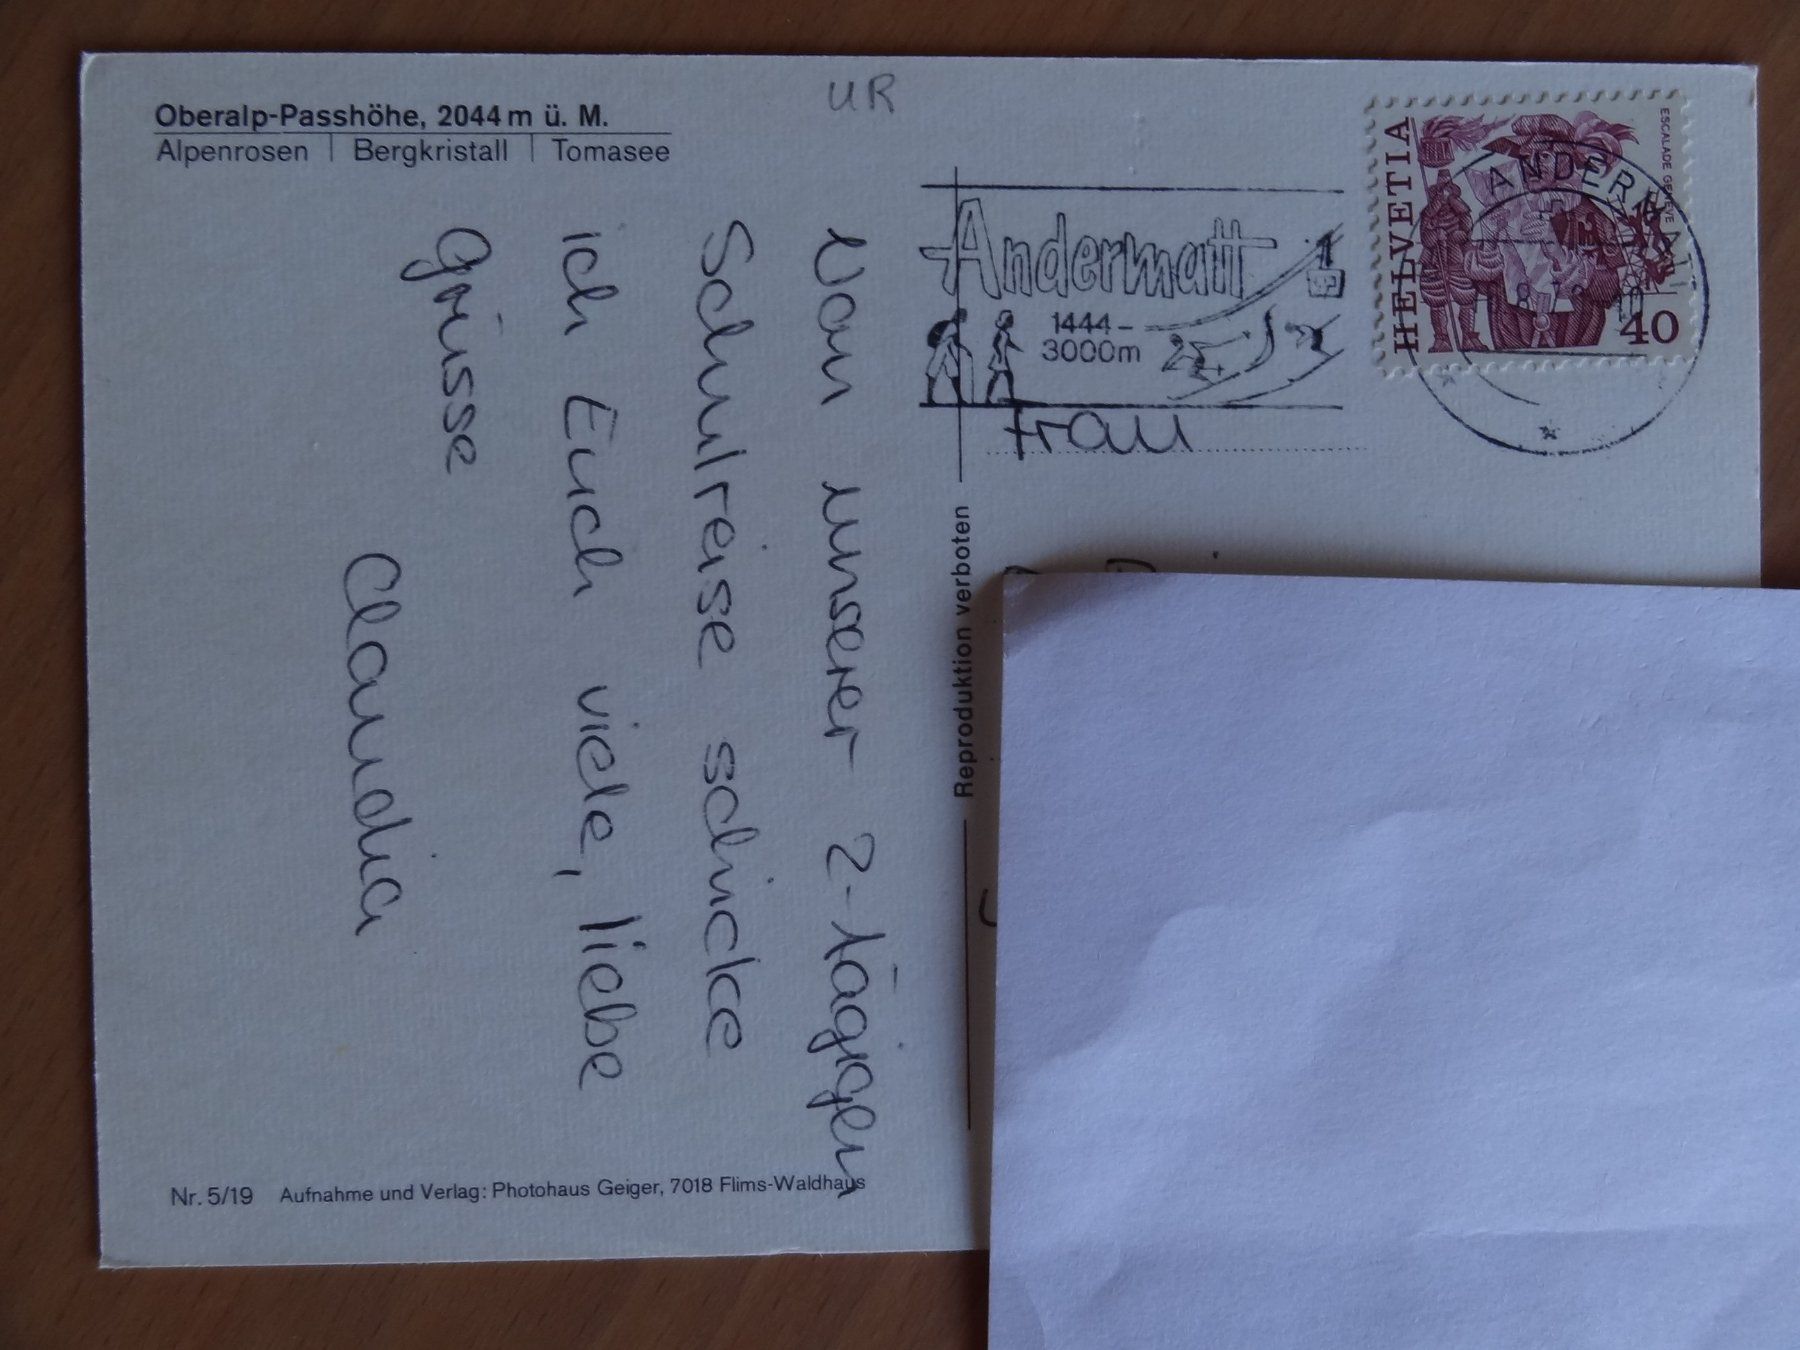 Oberalp-Passhöhe, 2044 m ü. M.
Alpenrosen | Bergkristall | Tomasee
UR
Von unserer 2-tägigen
Schulreise schicke
ich Euch viele, liebe
Grüsse
Claudia
Nr. 5/19 Aufnahme und Verlag: Photohaus Geiger, 7018 Flims-Waldhaus
Reproduktion verboten
Andermatt
1444 –
3000m
HELVETIA
ESCALADE GENÈVE
40
ANDERMATT
Frau